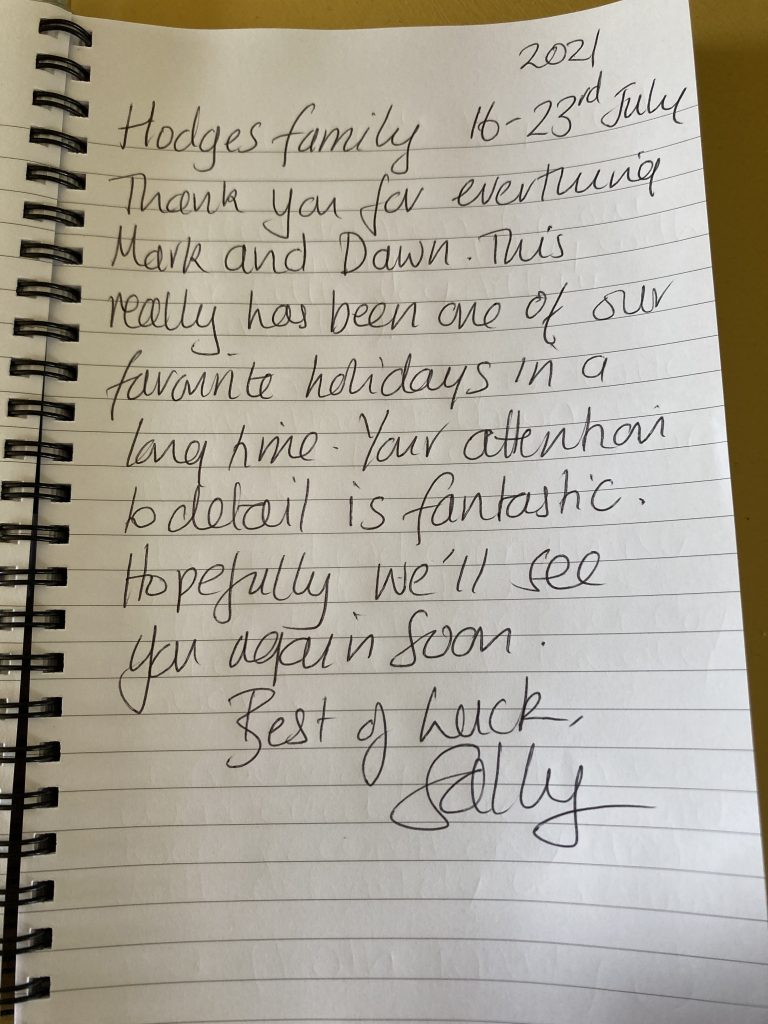 2021
Hodges family 16-23rd July
Thank you for everthing
Mark and Dawn. This
really has been one of our
favourite holidays in a
long time. Your attention
to detail is fantastic.
Hopefully we'll see
you again soon.
Best of Luck,
Sally